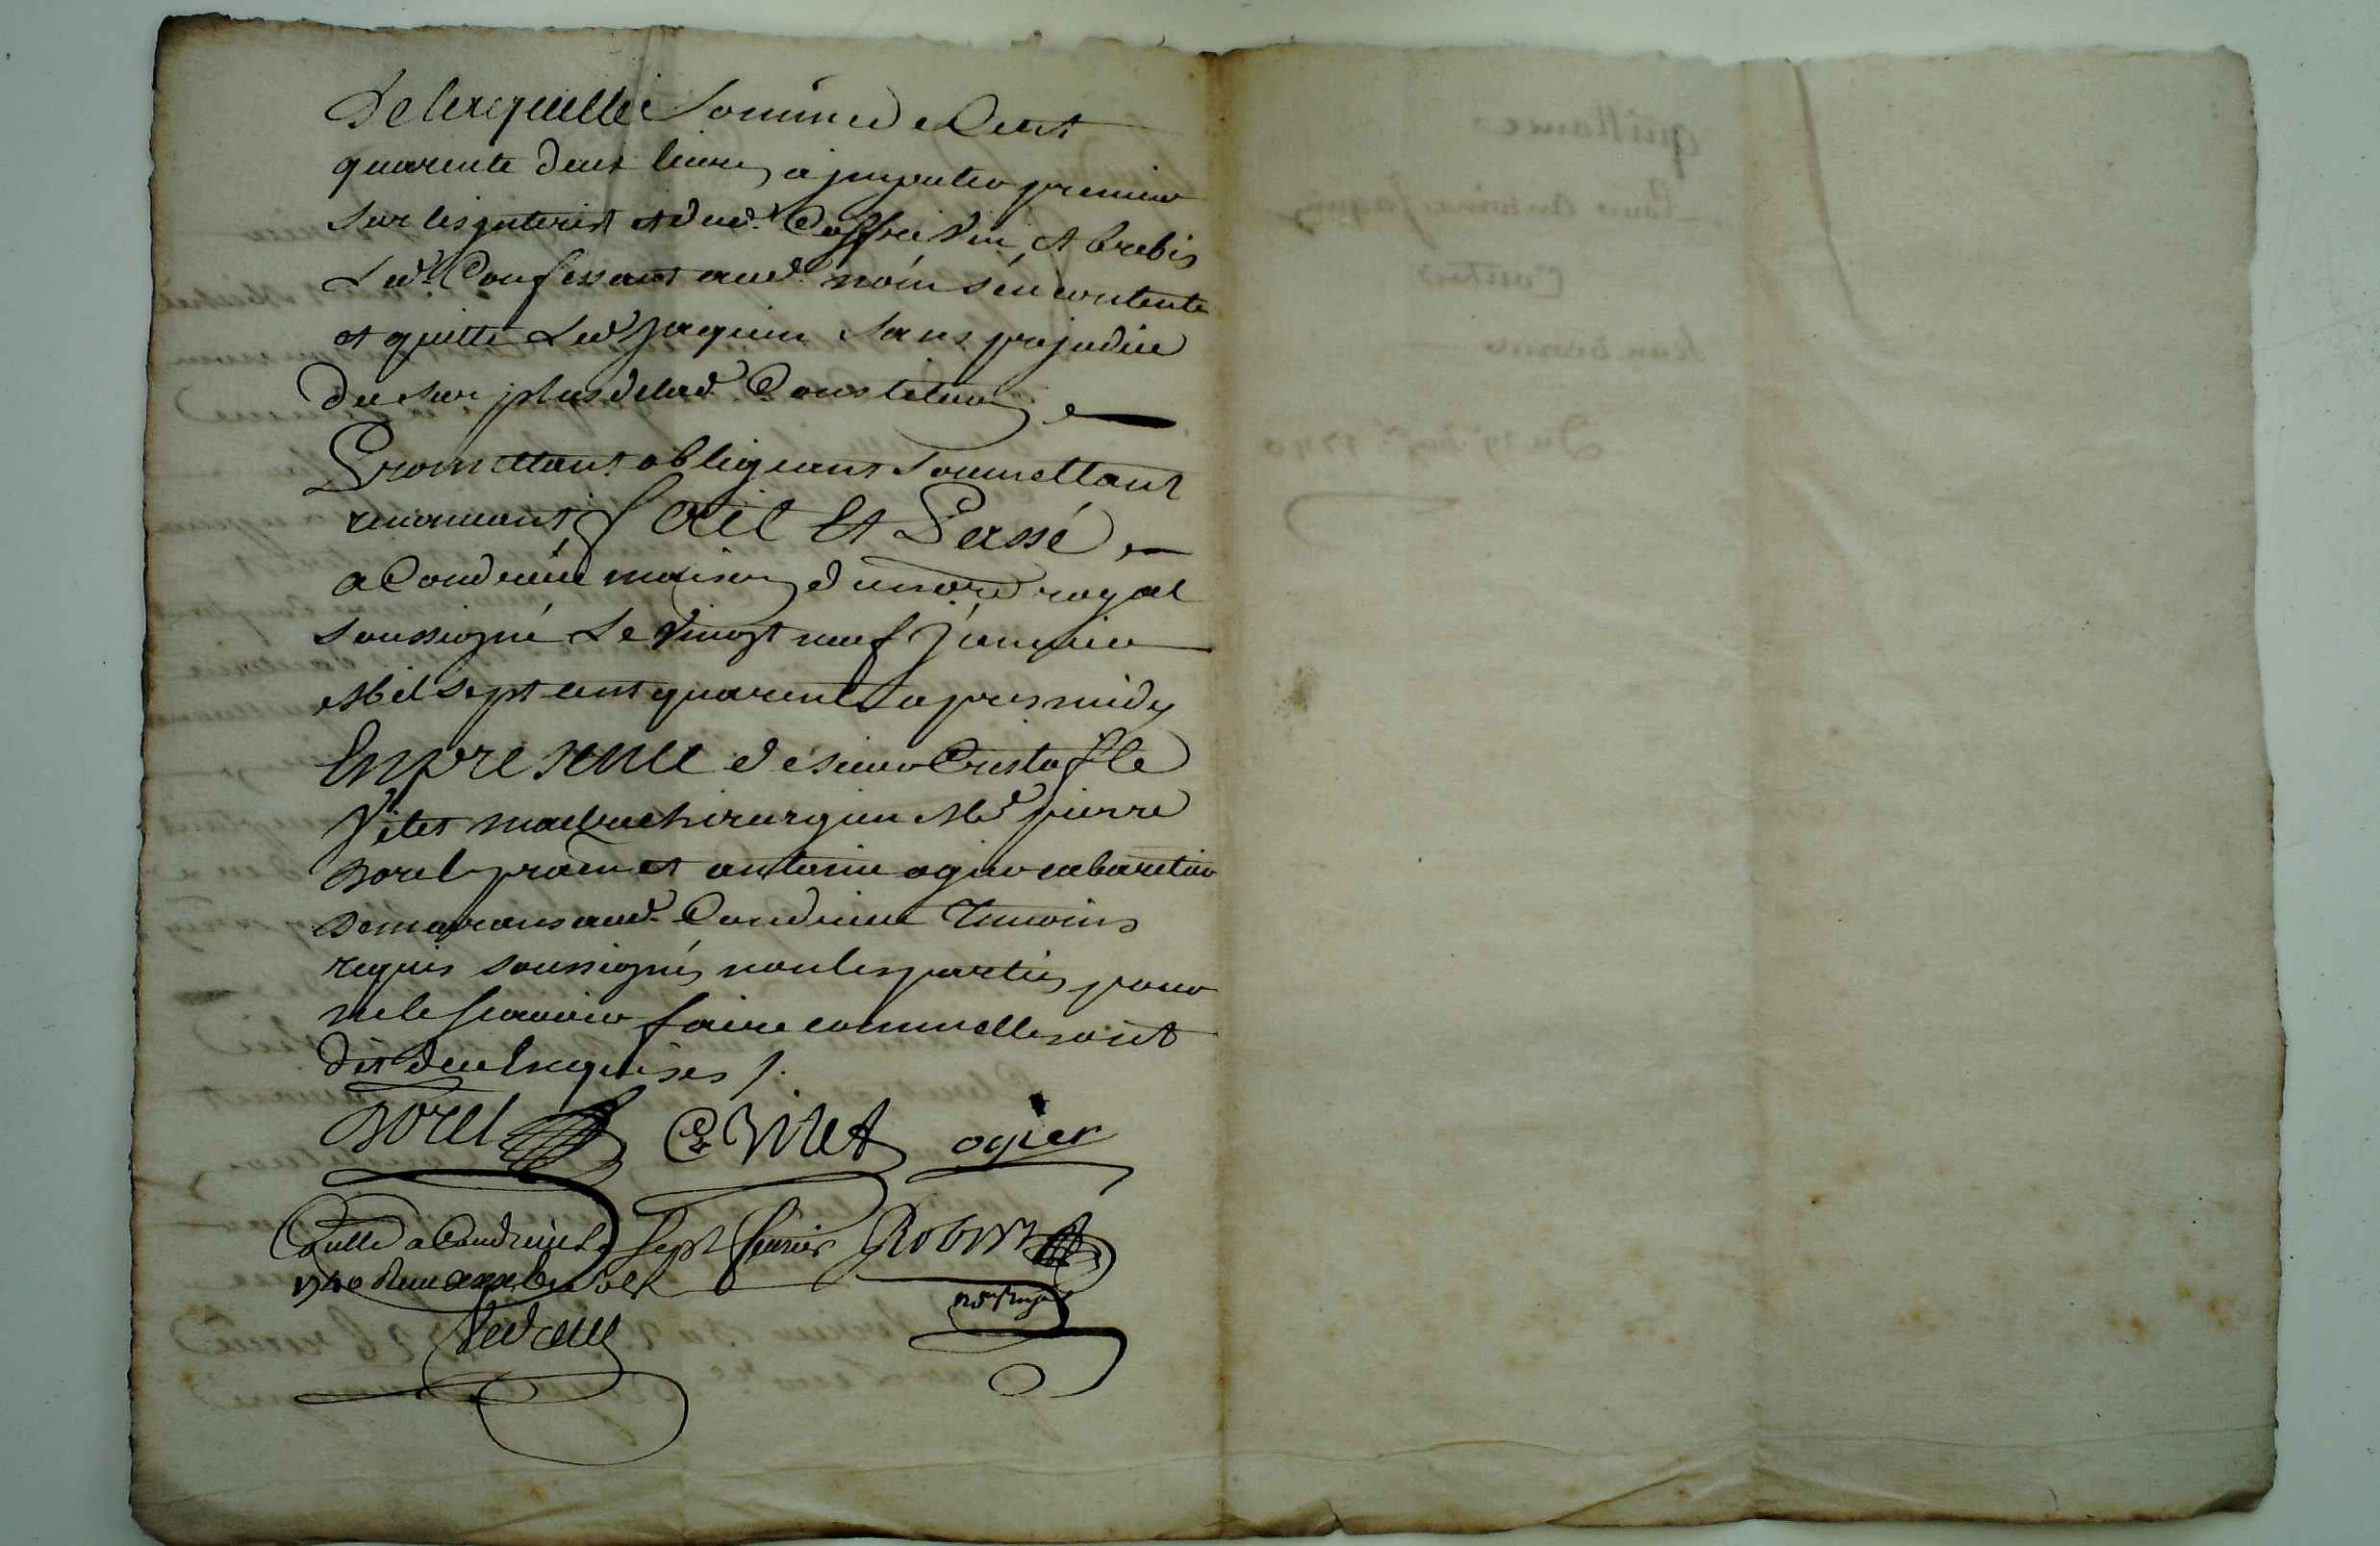 De laquelle somme de Cent
quarente deux livres a imputer premier
sur les interist et dud. Coffre vin et brebis
Led. Confessant aud. nom s'en contente
et quitte Led. Jaquin sans prejudice
du sur plus de lad. Constitution
Promettant obligeant soumettant
renonceant, fait et Passé
a Condrieu maison du no.re royal
soussigné Le vingt neuf janvier
Mil sept cent quarente apres midy
En presence de sieur Cristofle
Vitet maitre chirurgien M.e pierre
Borel pra.en et antoine ogier cabaretier
Demeurans aud. Condrieu Temoins
requis soussignés non les parties pour
ne le scavoir faire comme elles ont
dit de ce enquises /.
Borel C Vitet ogier
Conllé a Condrieu le sept fevrier Robert
1740 Reçu sols
no.re Royal
quittance
Antoine Jaquin
Contre
Jean
Du 29 janv. 1740